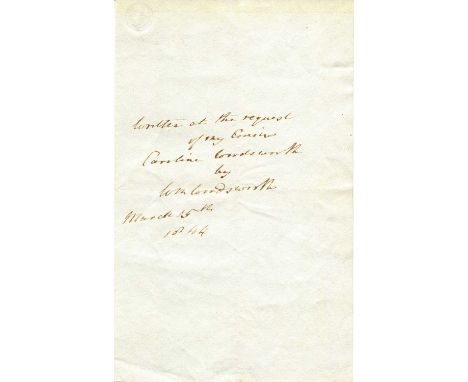 Written at the request
of my Cousin
Caroline Wordsworth
by
Wm Wordsworth
March 15th
1844